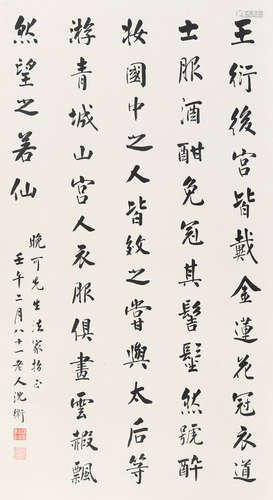 王衍後宮皆戴金蓮花冠衣道
士服酒酣免冠其髻髽然號醉
妝國中之人皆效之嘗與太后等
游青城山宮人衣服俱畫雲霞飄
然望之若仙
晚可先生法家指正
壬午二月八十一老人沈衛